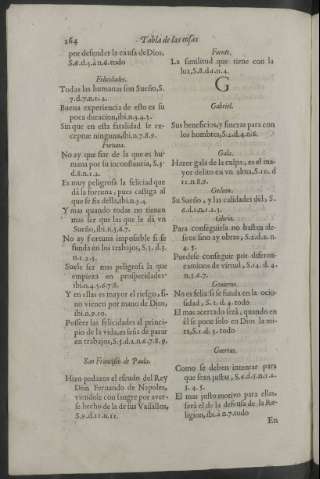 264 Tabla de las cosas
por defender la causa de Dios,
S.6.d.5.à n.6.todo
Felicidades.
Todas las humanas son Sueño, S.
7.d.7.n.1.2.
Buena experiencia de esto es su
poca duracion, ibi.n.3.4.5.
Sin que en esta fatalidad se ex-
ceptue ninguna, ibi.n.7.8.9.
Fortuna.
No ay que fiar de la que es hu-
mana por su inconstancia, S.3.
d.8.n.1.2.
Es muy peligrosa la felicidad que
dà la fortuna, pues castiga al
que se fia della, ibi.n.3.4.
Y mas quando todas no tienen
mas ser que las que le dà vn
Sueño, ibi.n.5.6.7.
No ay Fortuna imposible si se
funda en los trabajos, S.3. d.3.
n.1.2.3.
Suele ser mas peligrosa la que
empieza en prosperidades.
ibi.n.4.5.6.7.8.
Y en ellas es mayor el riesgo, si
no vienen por mano de Dios,
ibi.n.9.10.
Posseer las felicidades al princi-
pio de la vida, es señal de parar
en trabajos, S.3.d.2.n.6.7.8.9.
San Francisco de Paula.
Hizo pedazos el escudo del Rey
Don Fernando de Napoles,
viendole con sangre por aver-
se hecho de la de sus Vasallos,
S.9.d.11.n.11.
Fuente.
La similitud que tiene con la
luz, S.8.d.1.n.4.
G
Gabriel.
Sus beneficios, y finezas para con
los hombres,
Gala.
Hazer gala de la culpa, es el ma-
yor delito en vn alma, S.10. d
11.n.8.9.
Gedeon.
Su Sueño, y las calidades del, S.
6.d.1.n.1.2.3.
Gloria.
Para conseguirla no bastan de-
seos sino ay obras,
4. 5.
Puedese conseguir por diferentes
caminos de virtud, S.14. d. 4.
n.5.6.7.
Govierno.
No es feliz si se funda en la ocio-
sidad, S.1. d. 4. todo
El mas acertado serà, quando en
èl se pone solo en Dios la mi-
ra, S.1.d.3. todo
Guerras.
Como se deben intentar para
que sean justas,
3. 4. 5.
El mas justo motivo para ellas,
serà el de la defensa de la Re-
ligion, ibi.à n.7.todo
En